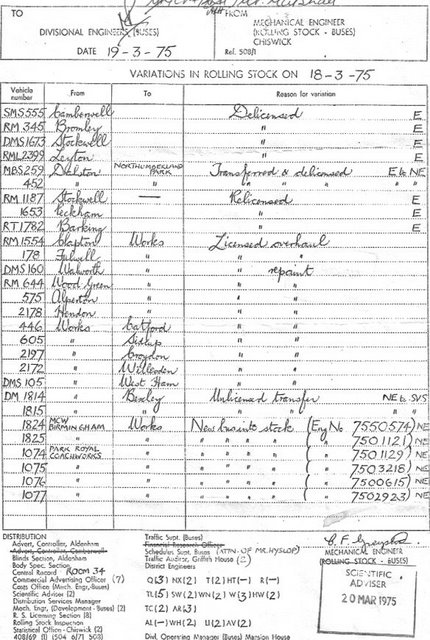 TO
FROM
DIVISIONAL ENGINEERS (BUSES)
MECHANICAL ENGINEER
(ROLLING STOCK - BUSES)
CHISWICK
DATE 19-3-75
Ref. 508/1
VARIATIONS IN ROLLING STOCK ON 18-3-75
Vehicle number From To Reason for variation
SMS 555 Camberwell Delicensed E
RM 345 Bromley " E
DMS 1673 Stockwell " E
RML 2399 Leyton " E
MBS 259 Dalston NORTHUMBERLAND PARK Transferred & delicensed E to NE
452 " " " " " "
RM 1187 Stockwell — Relicensed E
1653 Peckham " E
RT 1782 Barking " E
RM 1554 Clapton Works Licensed overhaul
178 Fulwell " " "
DMS 160 Walworth " " repaint
RM 644 Wood Green " " "
575 Alperton " " "
2178 Hendon " " "
446 Works Catford " "
605 " Sidcup " "
2197 " Croydon " "
2172 " Willesden " "
DMS 105 " West Ham " "
DM 1814 " Bexley Unlicensed transfer NE to SVS
1815 " " " " "
1824 MCW BIRMINGHAM Works New buses into stock (Eng No 7550574) NE
1825 " " " " " " ( " " 7501121) NE
1074 PARK ROYAL COACHWORKS " " " " ( " " 7501129) NE
1075 " " " " " " ( " " 7503218) NE
1076 " " " " " " ( " " 7500615) NE
1077 " " " " " " ( " " 7502923) NE
DISTRIBUTION
Advert. Controller, Aldenham
Advert. Controller, Camberwell
Blinds Section, Aldenham
Body Spec. Section
Central Record ROOM 34
Commercial Advertising Officer (7)
Cost Office (Mech. Engr., Buses)
Scientific Adviser (2)
Distribution Services Manager
Mech. Engr. (Development - Buses) (2)
R. S. Licensing Section (8)
Rolling Stock Inspection
Statistical Office - Chiswick (2)
408/69 (1) (504 6/71 508)
Traffic Supt. (Buses)
Financial Research Officer
Schedules Supt. Buses (ATTN. OF MR. HYSLOP)
Traffic Auditor, Griffith House (2)
District Engineers
Q(3) NX(2) T(2) HT(-) R(-)
TL(5) SW(2) WN(2) W(3) HW(2)
TC(2) AR(3)
AL(-) WH(2) U(2) AV(2)
Divl. Operating Manager (Buses) Mansion House
MECHANICAL ENGINEER
(ROLLING STOCK - BUSES)
SCIENTIFIC
ADVISER
20 MAR 1975